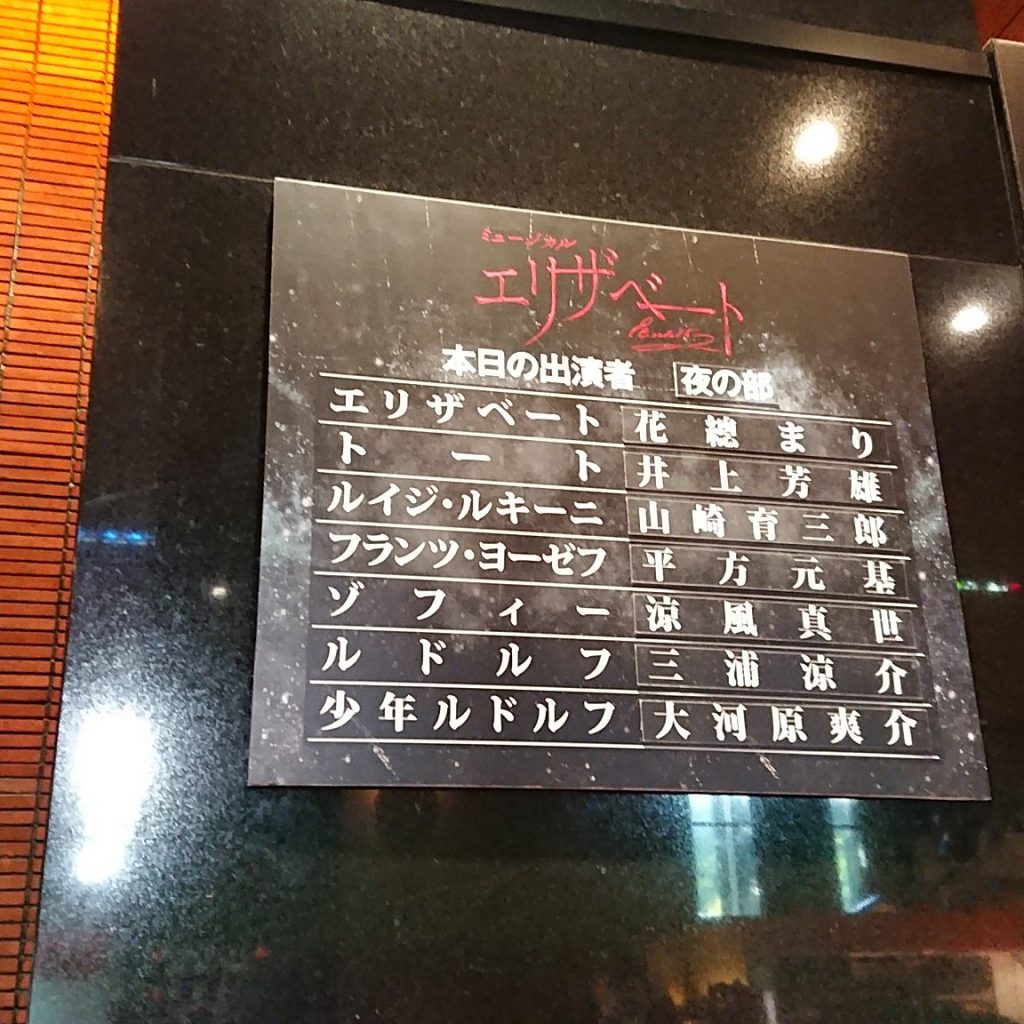 ミュージカル
エリザベート
本日の出演者 夜の部
エリザベート 花總まり
トート 井上芳雄
ルイジ・ルキーニ 山崎育三郎
フランツ・ヨーゼフ 平方元基
ゾフィー 涼風真世
ルドルフ 三浦涼介
少年ルドルフ 大河原爽介